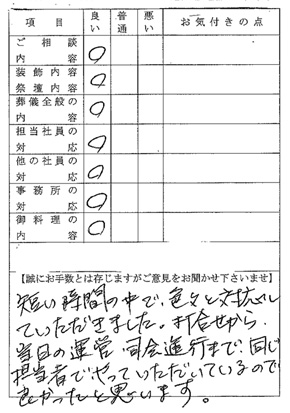 項目 良い 普通 悪い お気付きの点
ご相談内容 〇
装飾内容祭壇内容 〇
葬儀全般の内容 〇
担当社員の対応 〇
他の社員の対応 〇
事務所の対応 〇
御料理の内容 〇
【誠にお手数とは存じますがご意見をお聞かせ下さいませ】
短い時間の中で、色々と対応し
ていただきました。打合せから、
当日の運営、司会進行まで、同じ
担当者でやっていただいているので
良かったと思います。